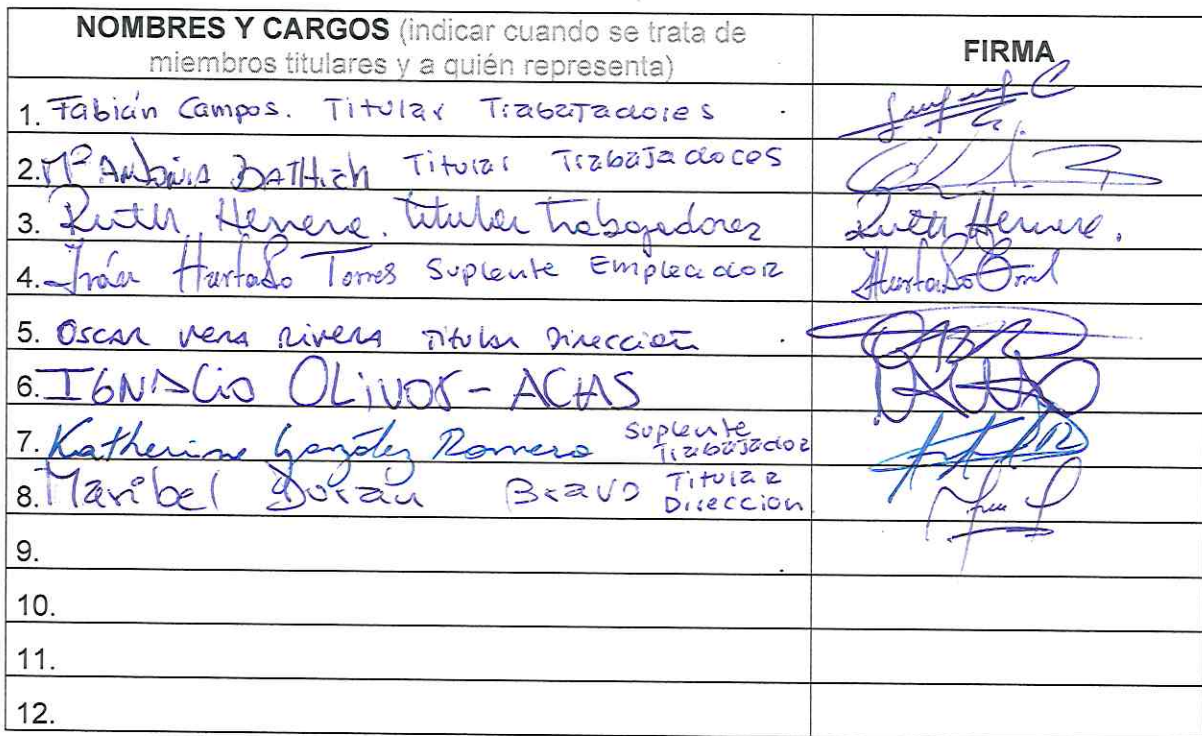 NOMBRES Y CARGOS (indicar cuando se trata de
miembros titulares y a quién representa)
FIRMA
1. Fabián Campos. Titular Trabajadores
2. Mª Antonia Titular Trabajadores
3. Ruth Herrera. titular trabajadores Ruth Herrera.
4. Iván Hurtado Torres Suplente Empleador
5. Oscar Vera Rivera Titular Dirección
6. IGNACio OLivos - ACHS
7. Katherine González Romero Suplente
Trabajador
8. Maribel Durán Bravo Titular
Direccion
9.
10.
11.
12.